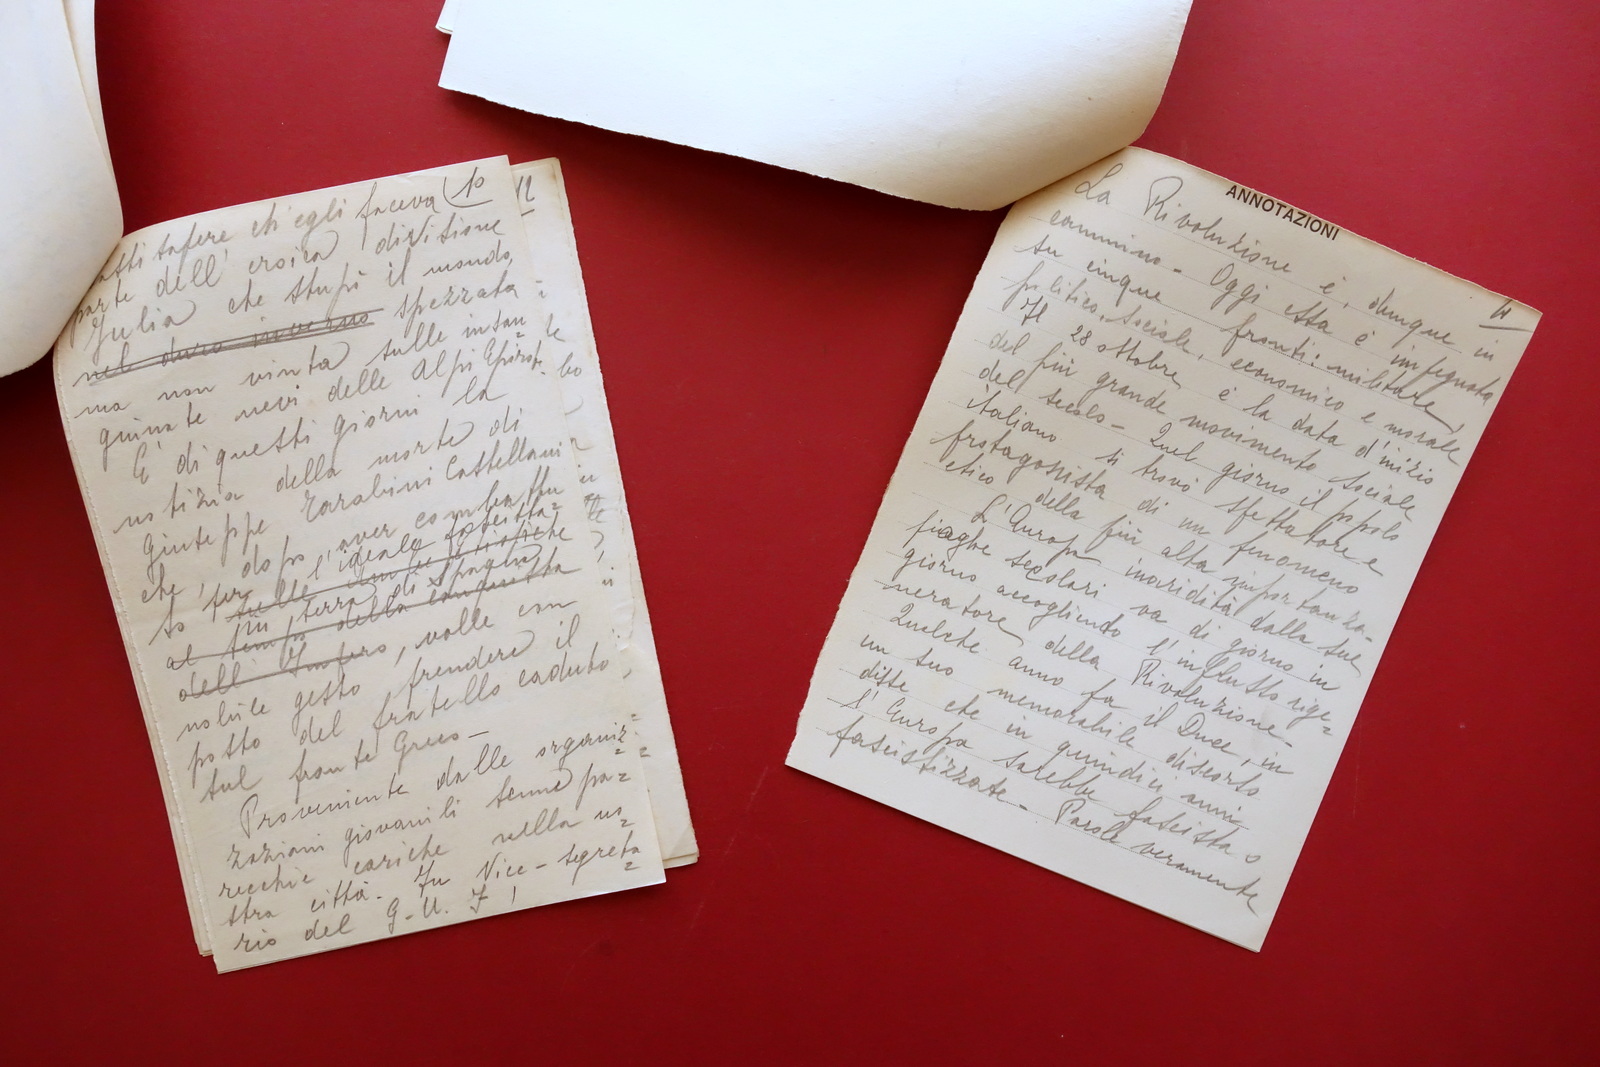 10
atti sapere ch'egli faceva
parte dell'eroica divisione
Julia che stupì il mondo,
nel duro inverno spezzata
ma non vinta sulle insan=
guinate nevi delle Alpi Epirote.
E' di questi giorni la
notizia della morte di
Giuseppe Zarabini Castellani
che, dopo aver combattu
to per l'ideale fascista
sulle
in terra di Spagna
al tempo della conquista
dell'Impero, volle con
nobile gesto prendere il
posto del fratello caduto
sul fronte Greco—
Proveniente dalle organiz=
zazioni giovanili tenne pa=
recchie cariche nella no=
stra città. Fu Vice-segreta=
rio del G.U.F!
12
ANNOTAZIONI
4
La Rivoluzione è, dunque in
cammino— Oggi essa è impegnata
su cinque fronti: militare,
politico, sociale, economico e morale
Il 28 ottobre è la data d'inizio
del più grande movimento sociale
del secolo— Quel giorno il popolo
italiano si trovò spettatore e
protagonista di un fenomeno
etico della più alta importanza—
L'Europa inaridita dalla sue
piaghe secolari va di giorno in
giorno accogliendo l'influsso rige=
neratore della Rivoluzione—
Qualche anno fa il Duce, in
un suo memorabile discorso
disse che in quindici anni
l'Europa sarebbe fascista o
fascistizzata— Parole veramente